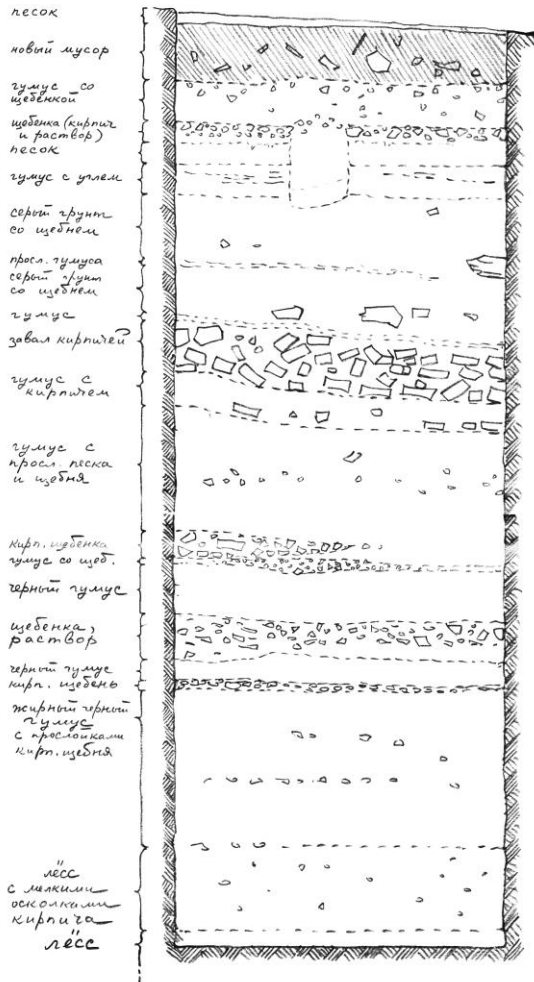 песок
новый мусор
гумус со
щебенкой
щебенка (кирпич
и раствор)
песок
гумус с углем
серый грунт
со щебнем
просл. гумуса
серый грунт
со щебнем
гумус
завал кирпичей
гумус с
кирпичем
гумус с
просл. песка
и щебня
кирп. щебенка
гумус со щеб.
черный гумус
щебенка,
раствор
черный гумус
кирп. щебень
жирный черный
гумус
с прослойками
кирп. щебня
лёсс
с мелкими
осколками
кирпича
лёсс